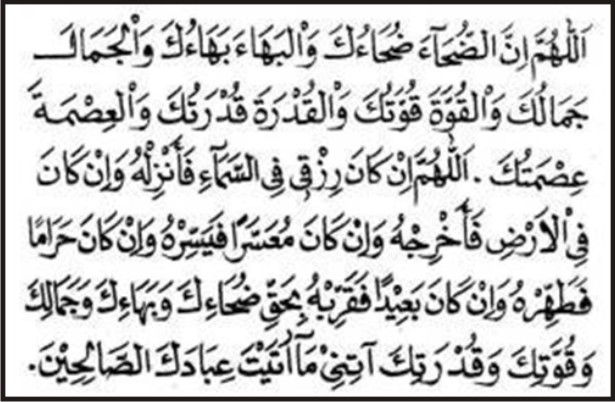 اَللّٰهُمَّ اِنَّ الضُّحَآءَ ضُحَاءُكَ وَالْبَهَاءَ بَهَاءُكَ وَالْجَمَالَ
جَمَالُكَ وَالْقُوَّةَ قُوَّتُكَ وَالْقُدْرَةَ قُدْرَتُكَ وَالْعِصْمَةَ
عِصْمَتُكَ . اَللّٰهُمَّ اِنْ كَانَ رِزْقِى فِى السَّمَآءِ فَأَنْزِلْهُ وَاِنْ كَانَ
فِى اْلاَرْضِ فَأَخْرِجْهُ وَاِنْ كَانَ مُعَسَّرًا فَيَسِّرْهُ وَاِنْ كَانَ حَرَامًا
فَطَهِّرْهُ وَاِنْ كَانَ بَعِيْدًا فَقَرِّبْهُ بِحَقِّ ضُحَاءِكَ وَبَهَاءِكَ وَجَمَالِكَ
وَقُوَّتِكَ وَقُدْرَتِكَ آتِنِىْ مَآاٰتَيْتَ عِبَادَكَ الصَّالِحِيْنَ.